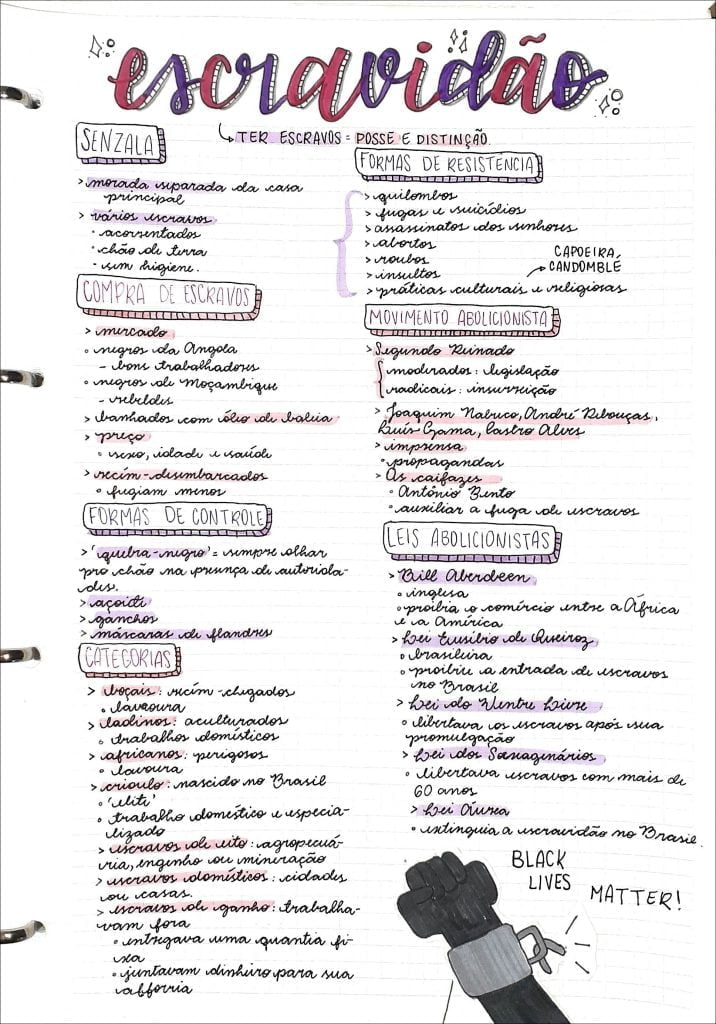 escravidão
↳ TER ESCRAVOS = POSSE E DISTINÇÃO.
SENZALA
> morada separada da casa
principal
> vários escravos
• acorrentados
• chão de terra
- sem higiene.
COMPRA DE ESCRAVOS
> mercado
o negros da Angola
- bons trabalhadores
o negros de Moçambique
- rebeldes
> banhados com óleo de baleia
> preço
o sexo, idade e saúde
> recém-desembarcados
o fugiam menos
FORMAS DE CONTROLE
> 'quebra-negro' = sempre olhar
pro chão na presença de autorida-
des.
> açoite
> ganchos
> máscaras de flandres
CATEGORIAS
> boçais: recém-chegados
o lavoura
> ladinos: aculturados
o trabalhos domésticos
> africanos: perigosos
o lavoura
> crioulo: nascido no Brasil
o 'elite'
o trabalho doméstico e especia-
lizado
> escravos de eito: agropecuá-
ria, engenho ou mineração
> escravos domésticos: cidades
ou casas.
> escravos de ganho: trabalha-
vam fora
o entregava uma quantia fi-
xa
o juntavam dinheiro para sua
alforria
FORMAS DE RESISTÊNCIA
> quilombos
> fugas e suicídios
> assassinatos dos senhores
> abortos
> roubos
> insultos
> práticas culturais e religiosas
CAPOEIRA,
CANDOMBLÉ
MOVIMENTO ABOLICIONISTA
> Segundo Reinado
moderados: legislação
radicais: insurreição
> Joaquim Nabuco, André Rebouças,
Luís Gama, Castro Alves
> imprensa
o propagandas
> Os caifazes
o Antônio Bento
o auxiliar a fuga de escravos
LEIS ABOLICIONISTAS
> Bill Aberdeen
o inglesa
o proibia o comércio entre a África
e a América
> Lei Eusébio de Queiroz
o brasileira
o proibiu a entrada de escravos
no Brasil
> Lei do Ventre Livre
o libertava os escravos após sua
promulgação
> Lei dos Sexagenários
o libertava escravos com mais de
60 anos
> Lei Áurea
o extinguia a escravidão no Brasil.
BLACK
LIVES
MATTER!